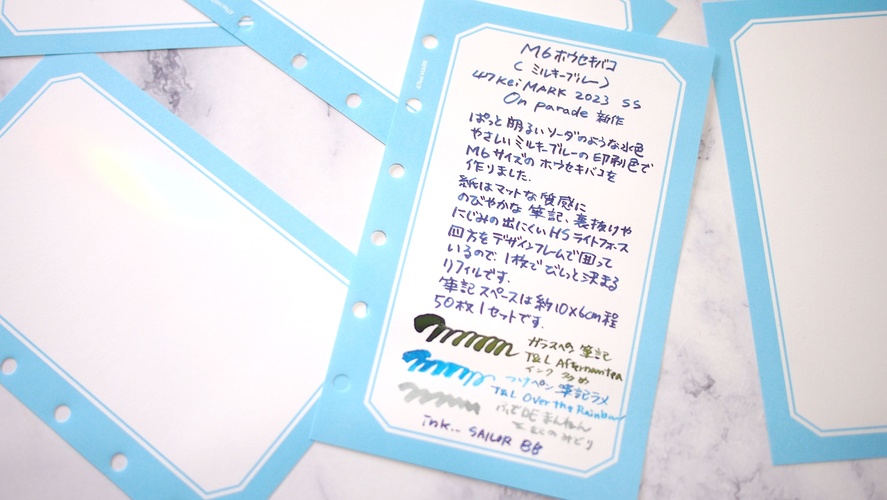 M6 ホウセキバコ
(ミルキーブルー)
47 Kei MARK 2023 SS
On parade 新作
ぱっと明るいソーダのような水色
やさしいミルキーブルーの印刷色で
M6サイズのホウセキバコを
作りました.
紙はマットな質感に
のびやかな筆記、裏抜けや
にじみの出にくいHSライトフォース
四方をデザインフレームで囲って
いるので、1枚でびしっと決まる
リフィルです.
筆記スペースは約10×6cm程
50枚1セットです.
ガラスペン筆記
T&L Afternoontea
インク多め
つけペン筆記ラメ
T&L Over the Rainbow
ふでDEまんねん
みどり
ink... SAILOR BB